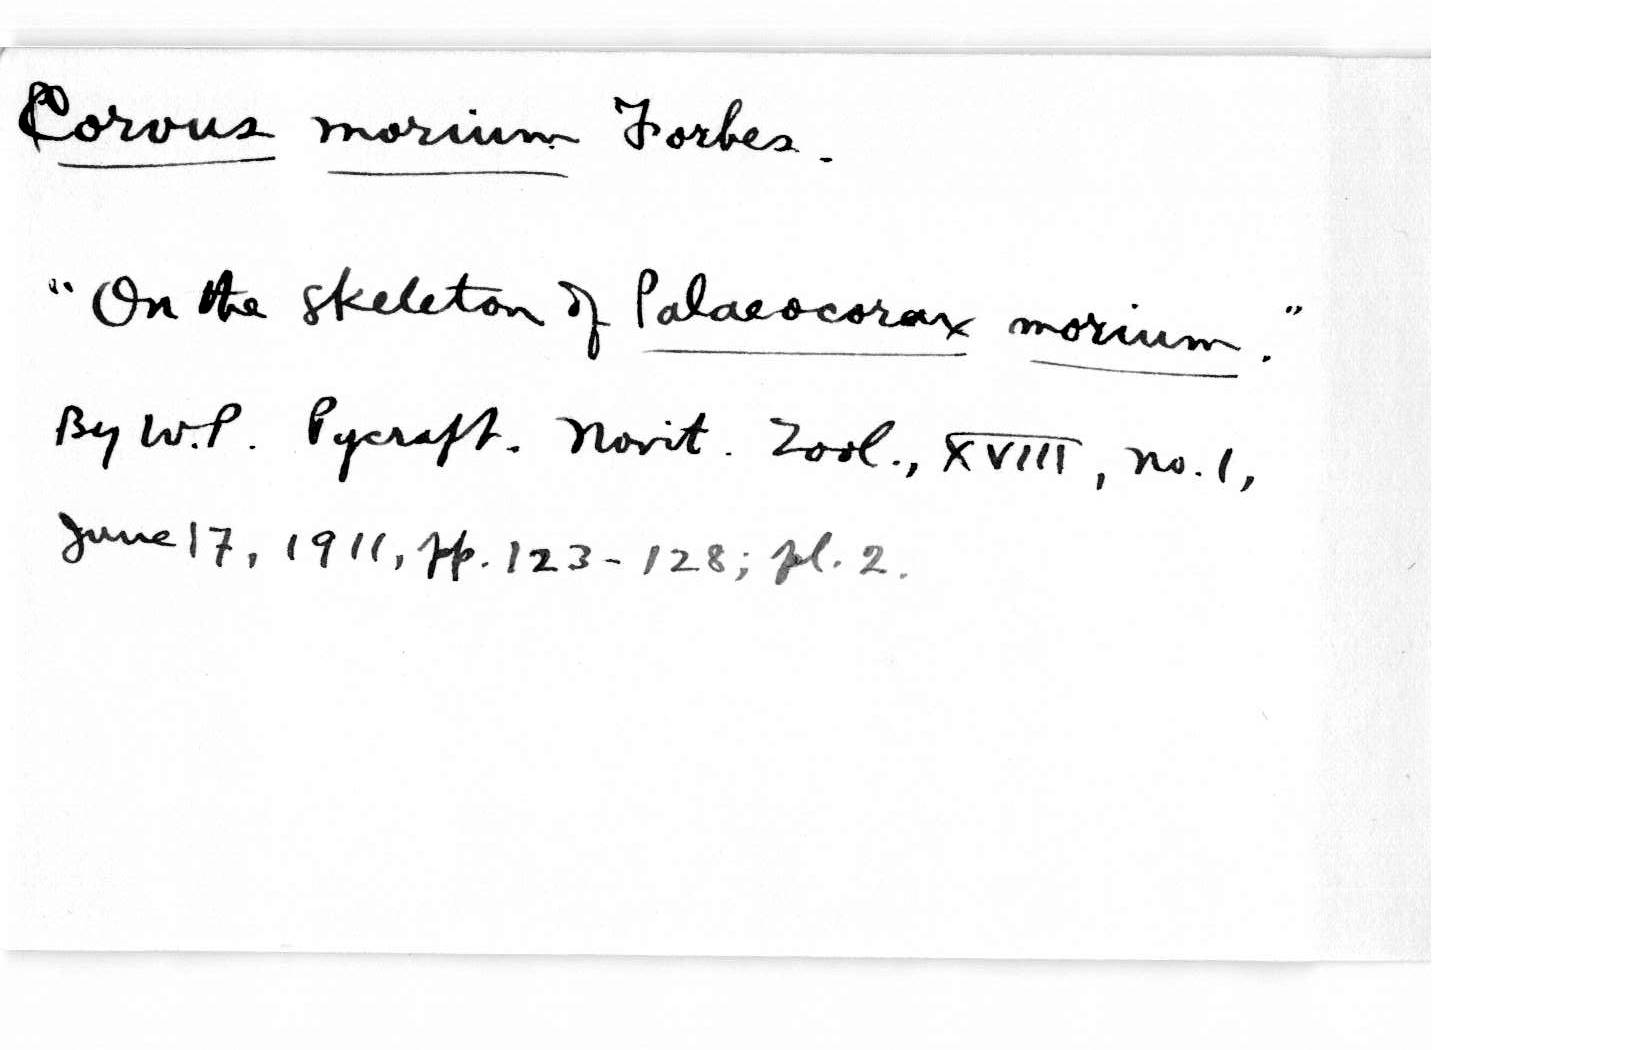 Corvus morium Forbes.
"On the skeleton of Palaeocorax morium."
By W.P. Pycraft. Novit. Zool., XVIII, no. 1,
June 17, 1911, pp. 123-128; pl. 2.